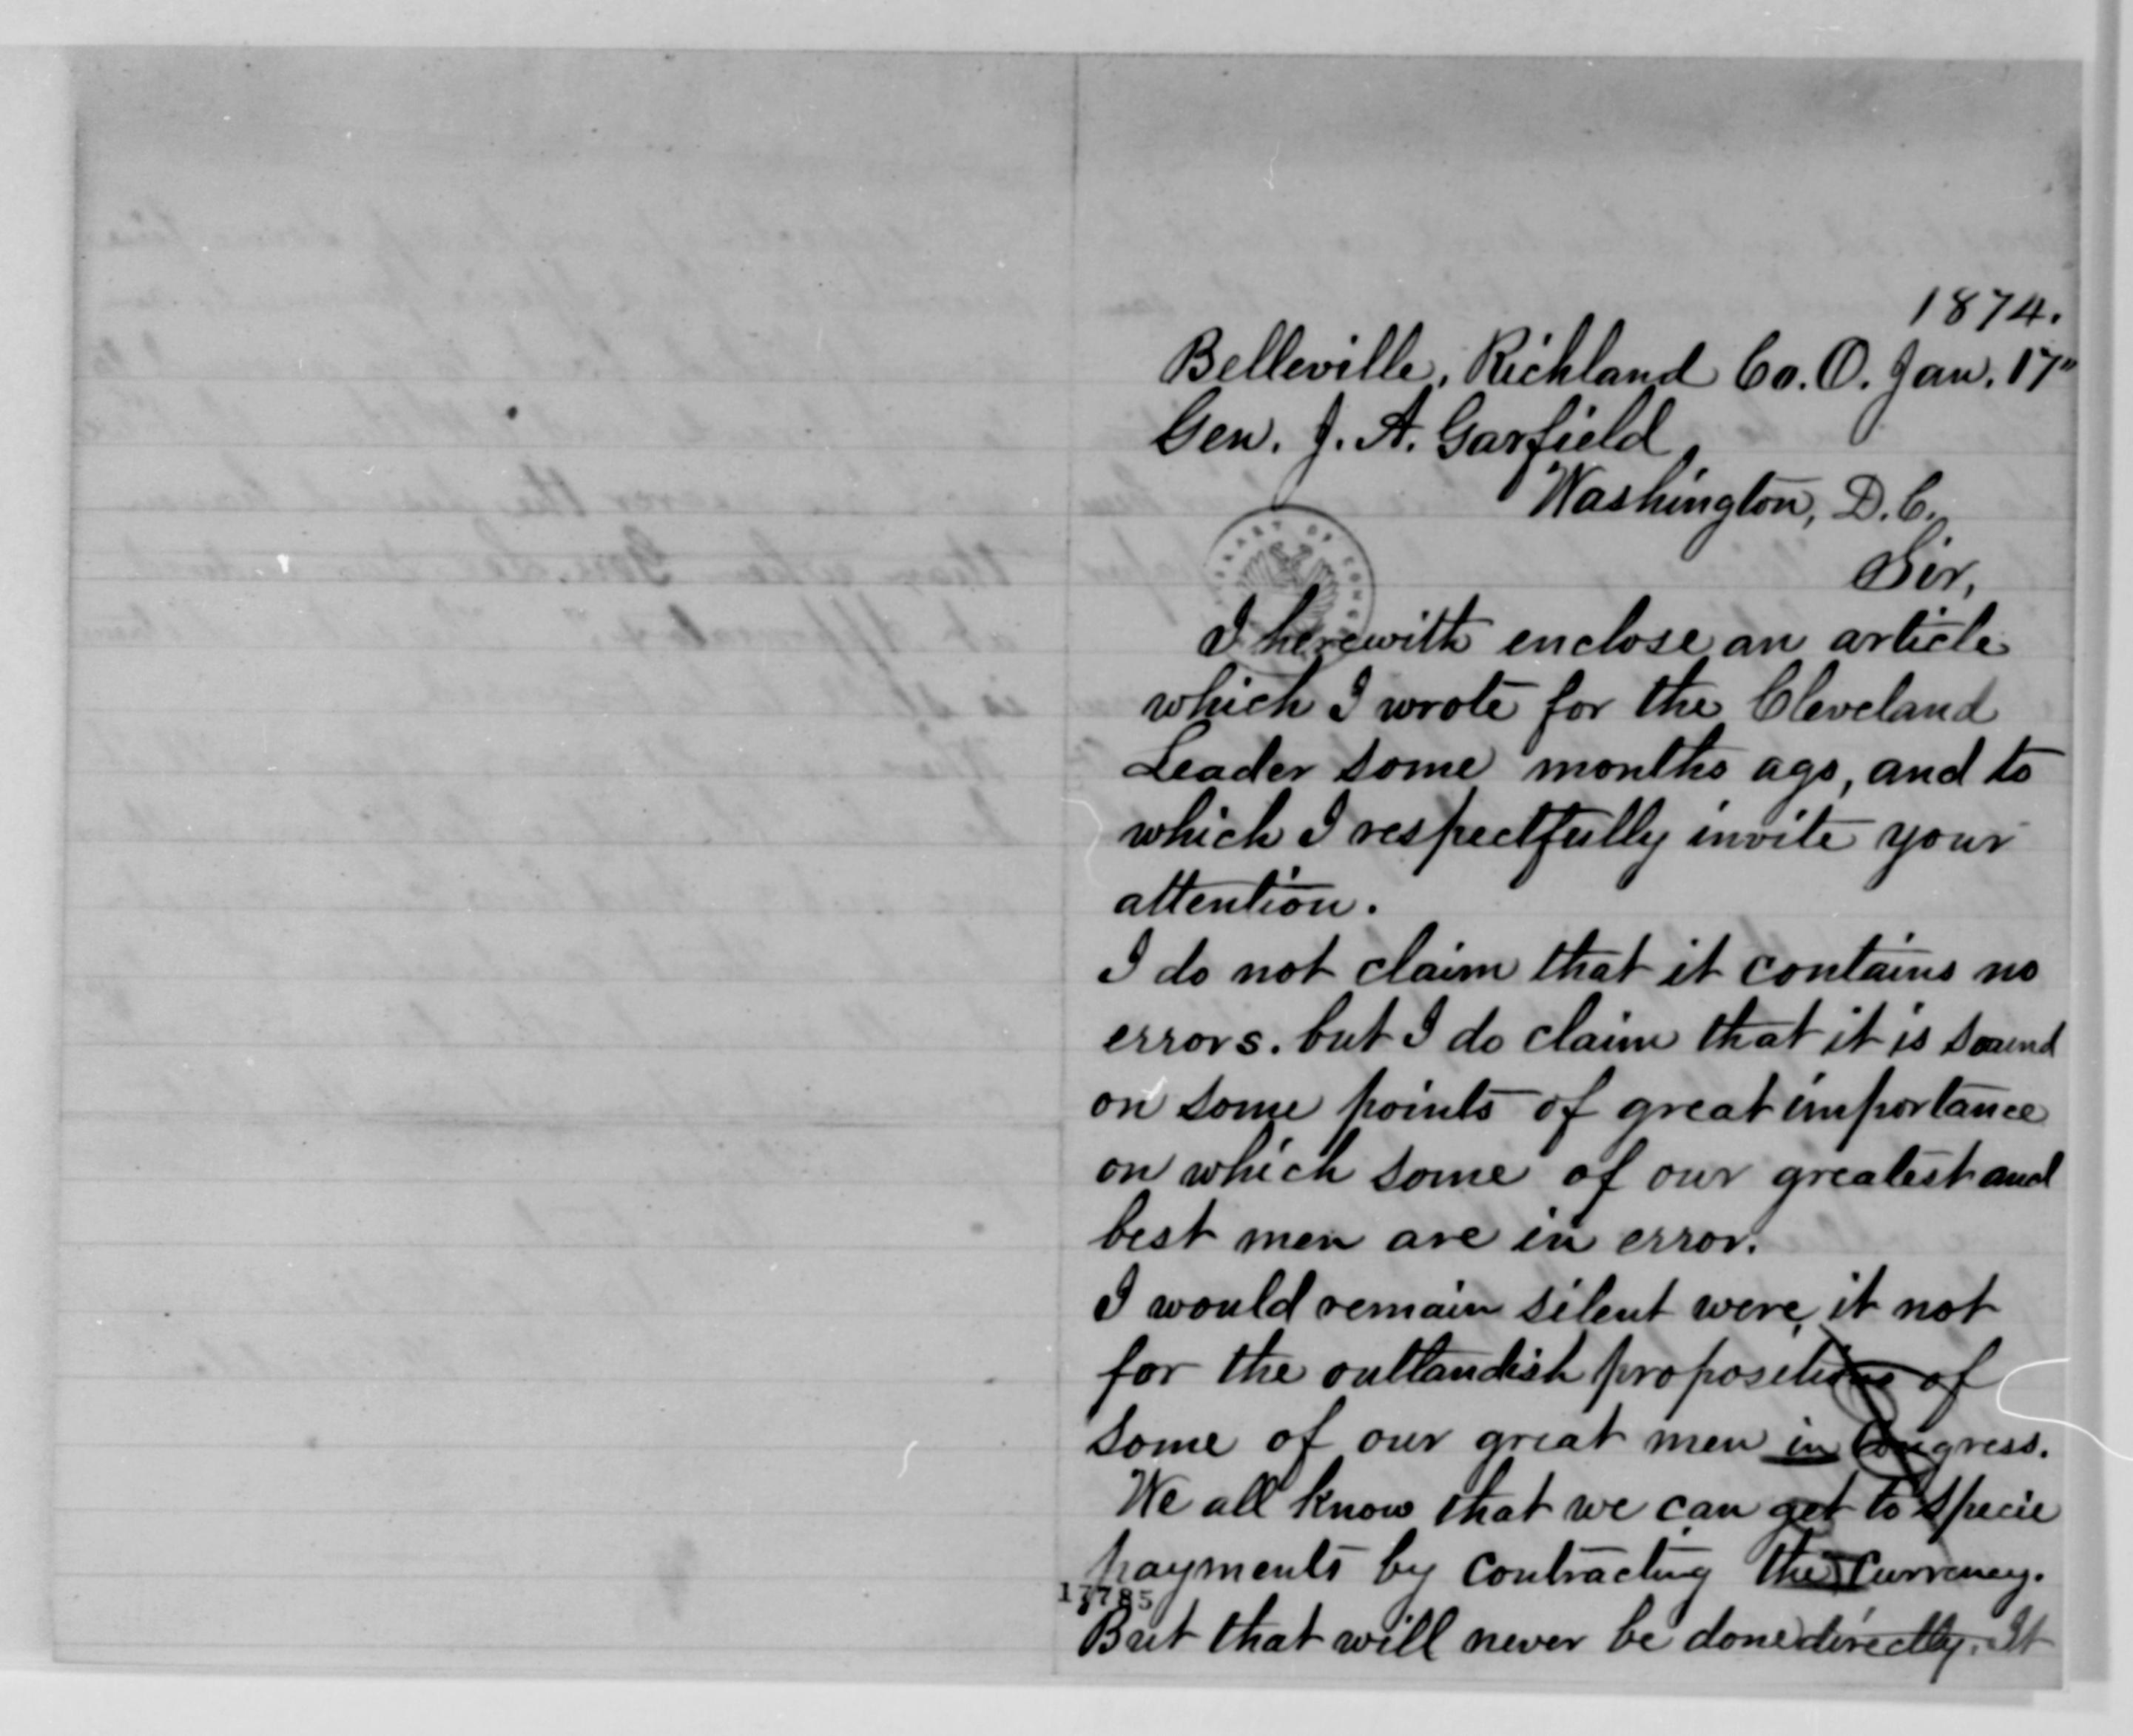 1874.
Belleville, Richland Co. O. Jan. 17"
Gen. J. A. Garfield,
Washington, D. C.
Sir,
I herewith enclose an article
which I wrote for the Cleveland
Leader some months ago, and to
which I respectfully invite your
attention.
I do not claim that it contains no
errors. but I do claim that it is sound
on some points of great importance
on which some of our greatest and
best men are in error.
I would remain silent were it not
for the outlandish propositions of
some of our great men in Congress.
We all know that we can get to specie
payments by contracting the currency.
17785
But that will never be done directly. It